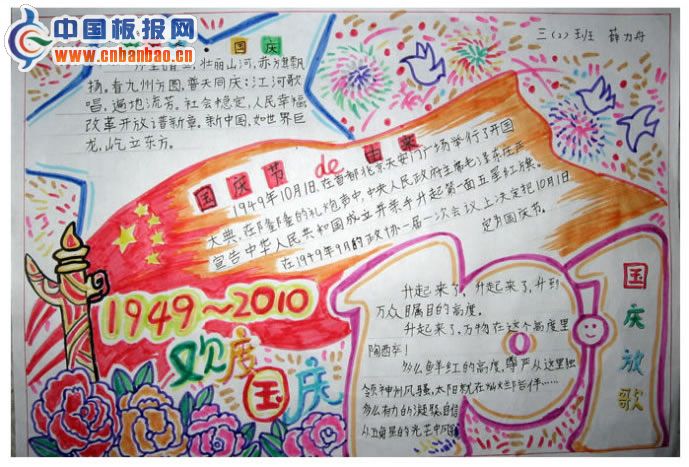 中国板报网
www.cnbanbao.cn
国庆
三(2)班 薛力舟
壮丽山河,赤旗飘
扬。看九州方圆,普天同庆;江河歌
唱,遍地流芳。社会稳定,人民幸福
改革开放谱新章。新中国,如世界巨
龙,屹立东方。
国庆节de由来
1949年10月1日,在首都北京天安门广场举行了开国
大典,在隆隆的礼炮声中,中央人民政府主席毛泽东庄严
宣告中华人民共和国成立并亲手升起第一面五星红旗。
在1949年9月的政协一届一次会议上决定把10月1日
定为国庆节。
1949~2010
欢度国庆
101
国庆放歌
升起来了,升起来了,升到
万众瞩目的高度。
升起来了,万物在这个高度里
陶醉
多么鲜红的高度,尊严从这里
领神州风骚,太阳就在
多么有力的凝聚,自信
从五角星的光芒中